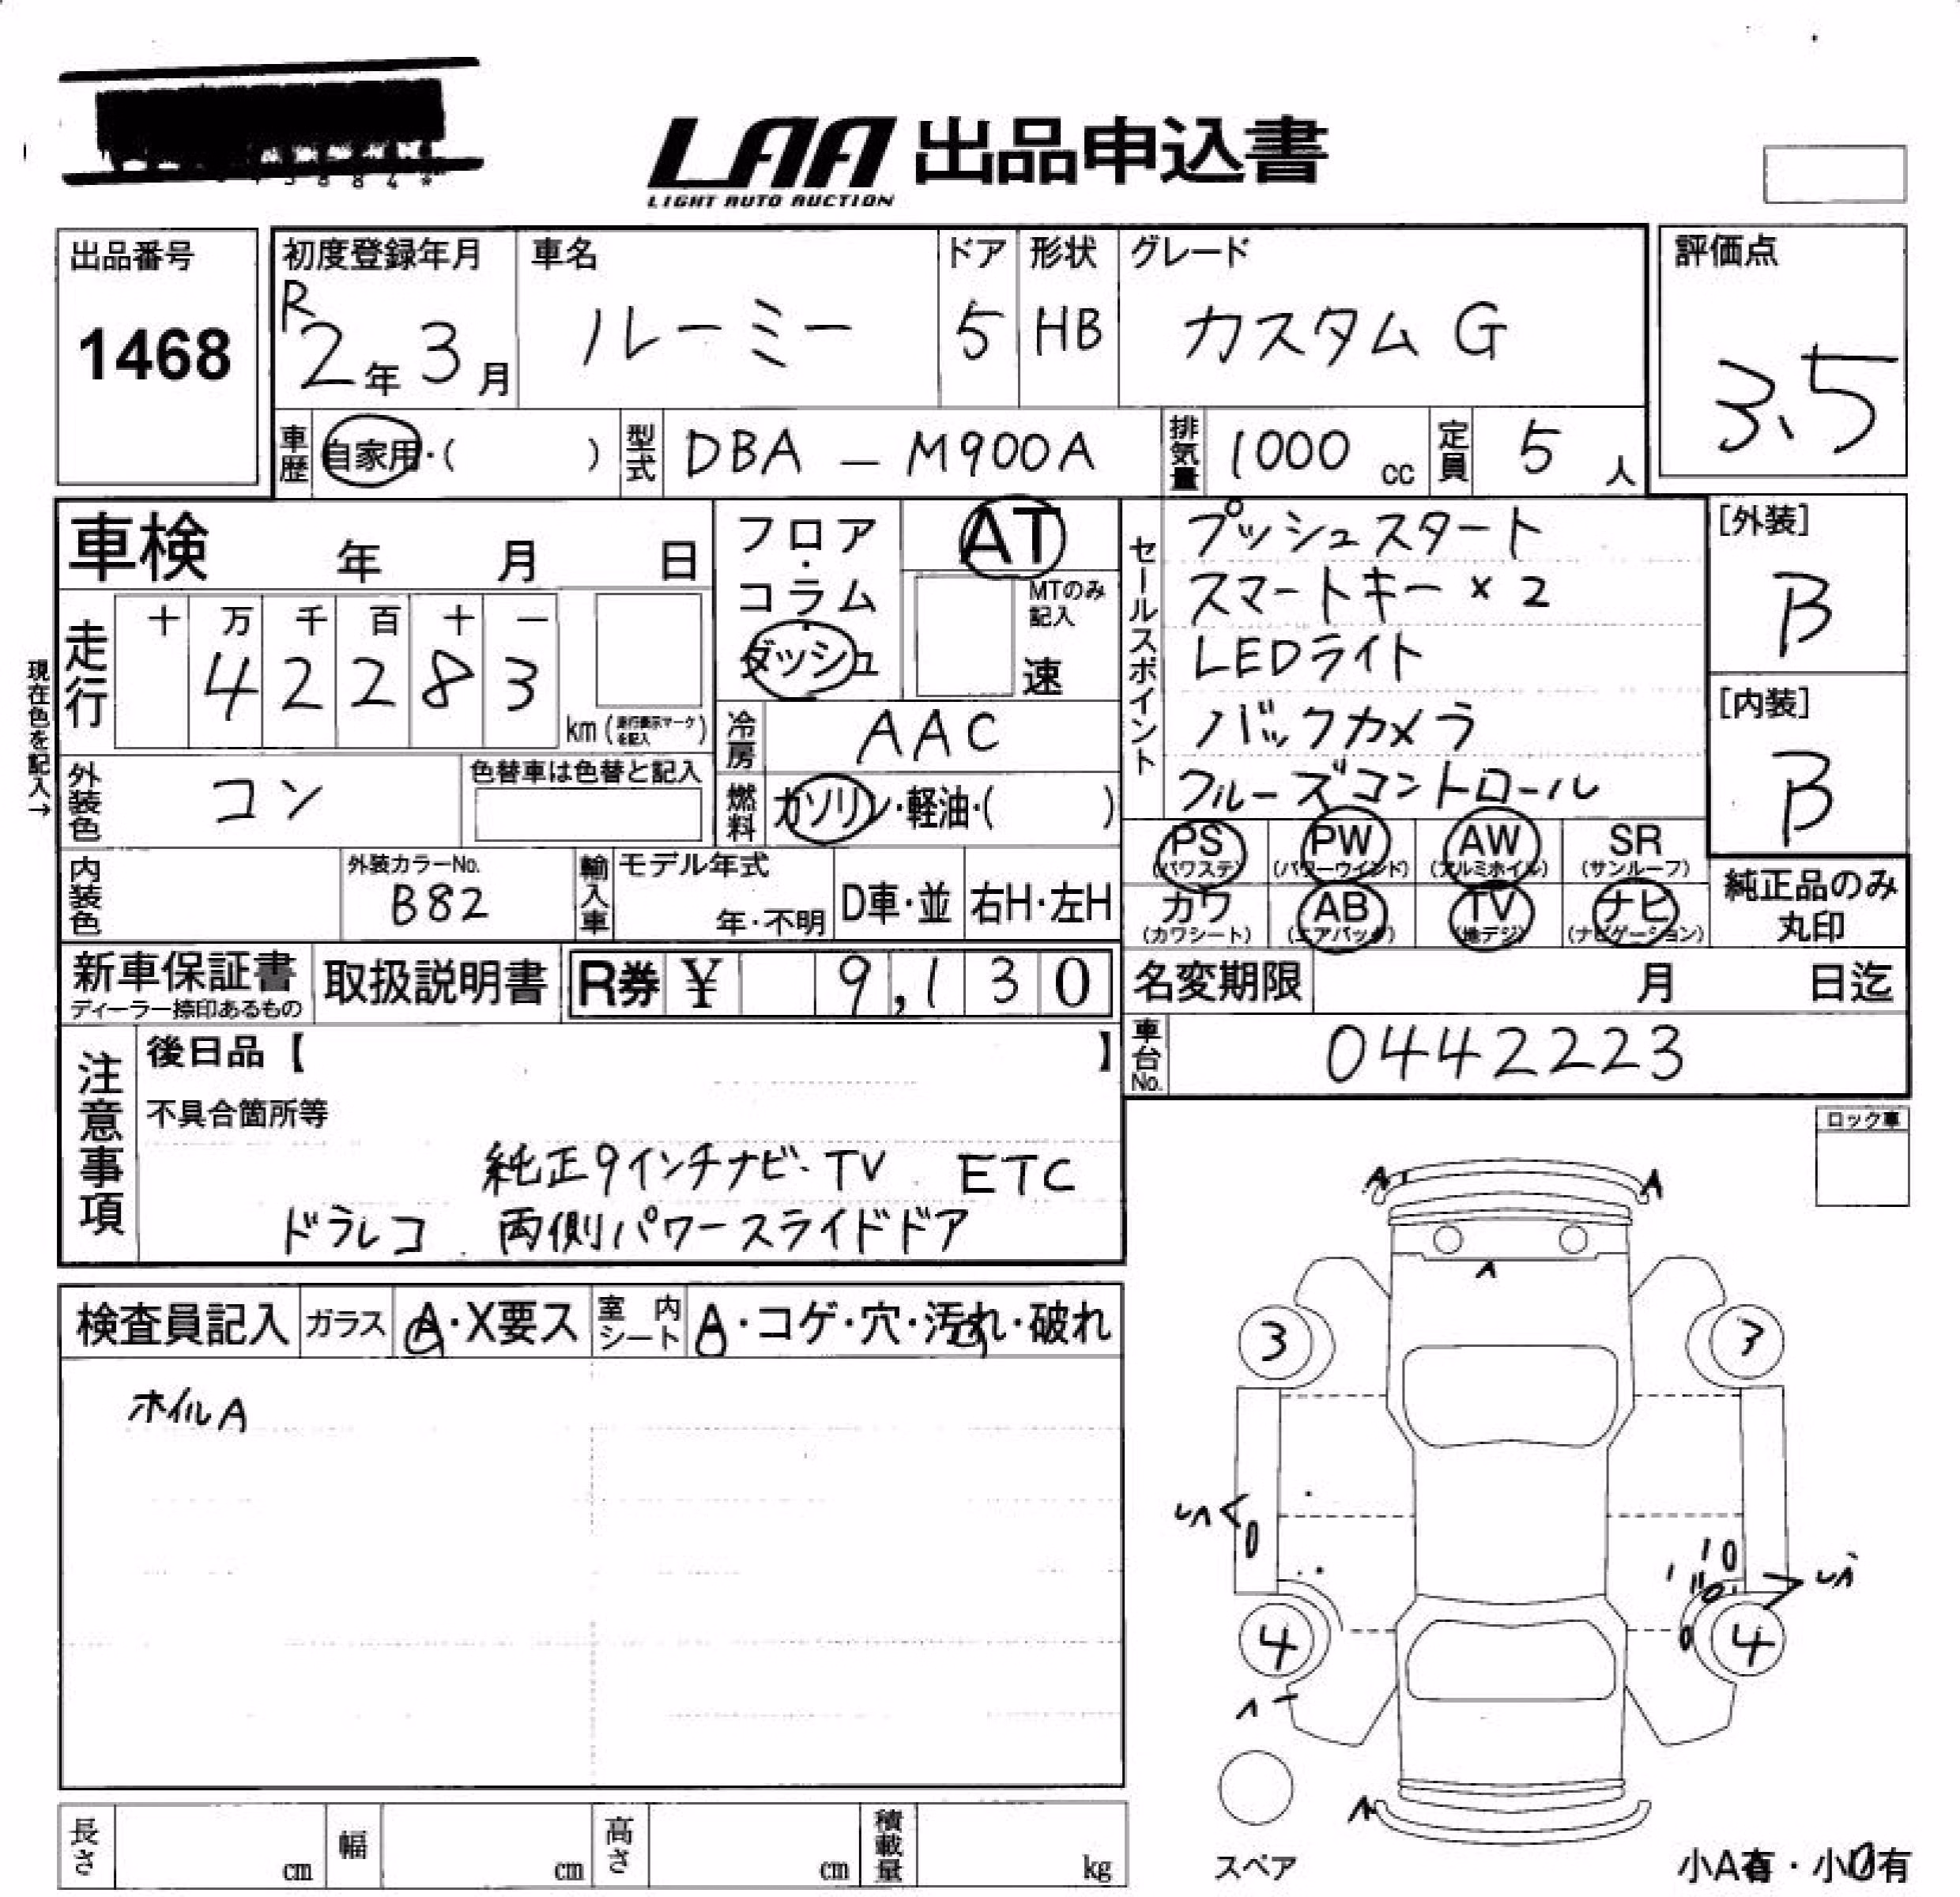 LAA 出品申込書
LIGHT AUTO AUCTION
出品番号
1468
初度登録年月
R2年3月
車名
ルーミー
ドア
5
形状
HB
グレード
カスタム G
評価点
3.5
車歴
自家用・( )
型式
DBA - M900A
排気量
1000 cc
定員
5 人
車検 年 月 日
フロア・コラム・ダッシュ
AT
MTのみ記入
速
現在色を記入→
走行
十 万 千 百 十 一
4 2 2 8 3
km (走行表示マークを記入)
冷房
AAC
燃料
ガソリン・軽油・( )
外装色
コン
色替車は色替と記入
内装色
外装カラーNo.
B82
輸入車
モデル年式
年・不明
D車・並
右H・左H
セールスポイント
プッシュスタート
スマートキー×2
LEDライト
バックカメラ
クルーズコントロール
[外装]
B
[内装]
B
PS (パワステ)
PW (パワーウインド)
AW (アルミホイル)
SR (サンルーフ)
カワ (カワシート)
AB (エアバック)
TV (地デジ)
ナビ (ナビゲーション)
純正品のみ丸印
新車保証書
ディーラー捺印あるもの
取扱説明書
R券 ¥ 9,130
名変期限 月 日迄
車台No.
0442223
注意事項
後日品【 】
不具合箇所等
純正9インチナビ・TV ETC
ドラレコ 両側パワースライドドア
ロック車
検査員記入
ガラス
A・X要ス
室内シート
A・コゲ・穴・汚れ・破れ
ホイルA
A
A
A
3
3
4
4
スペア
小A有・小U有
長さ cm
幅 cm
高さ cm
積載量 kg